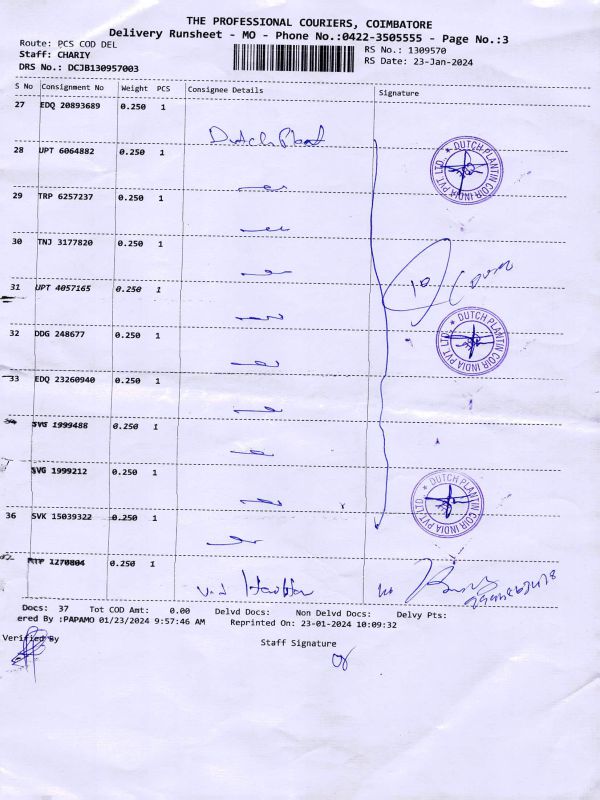 THE PROFESSIONAL COURIERS, COIMBATORE
Delivery Runsheet - MO - Phone No.:0422-3505555 - Page No.:3
Route: PCS COD DEL
RS No.: 1309570
Staff: CHARIY
RS Date: 23-Jan-2024
DRS No.: DCJB130957003
S No Consignment No Weight PCS Consignee Details Signature
27 EDQ 20893689 0.250 1
Dutch Plant
28 UPT 6064882 0.250 1
DUTCH PLANTIN COIR INDIA PVT LTD. ★
29 TRP 6257237 0.250 1
30 TNJ 3177820 0.250 1
10 Cover
31 UPT 4057165 0.250 1
32 DDG 248677 0.250 1
DUTCH PLANTIN COIR INDIA PVT LTD. ★
33 EDQ 23260940 0.250 1
SVG 1999488 0.250 1
SVG 1999212 0.250 1
DUTCH PLANTIN COIR INDIA PVT LTD. ★
36 SVK 15039322 0.250 1
RTP 1270804 0.250 1
Docs: 37 Tot COD Amt: 0.00 Delvd Docs: Non Delvd Docs: Delvy Pts:
ered By :PAPAMO 01/23/2024 9:57:46 AM Reprinted On: 23-01-2024 10:09:32
Verified By
Staff Signature